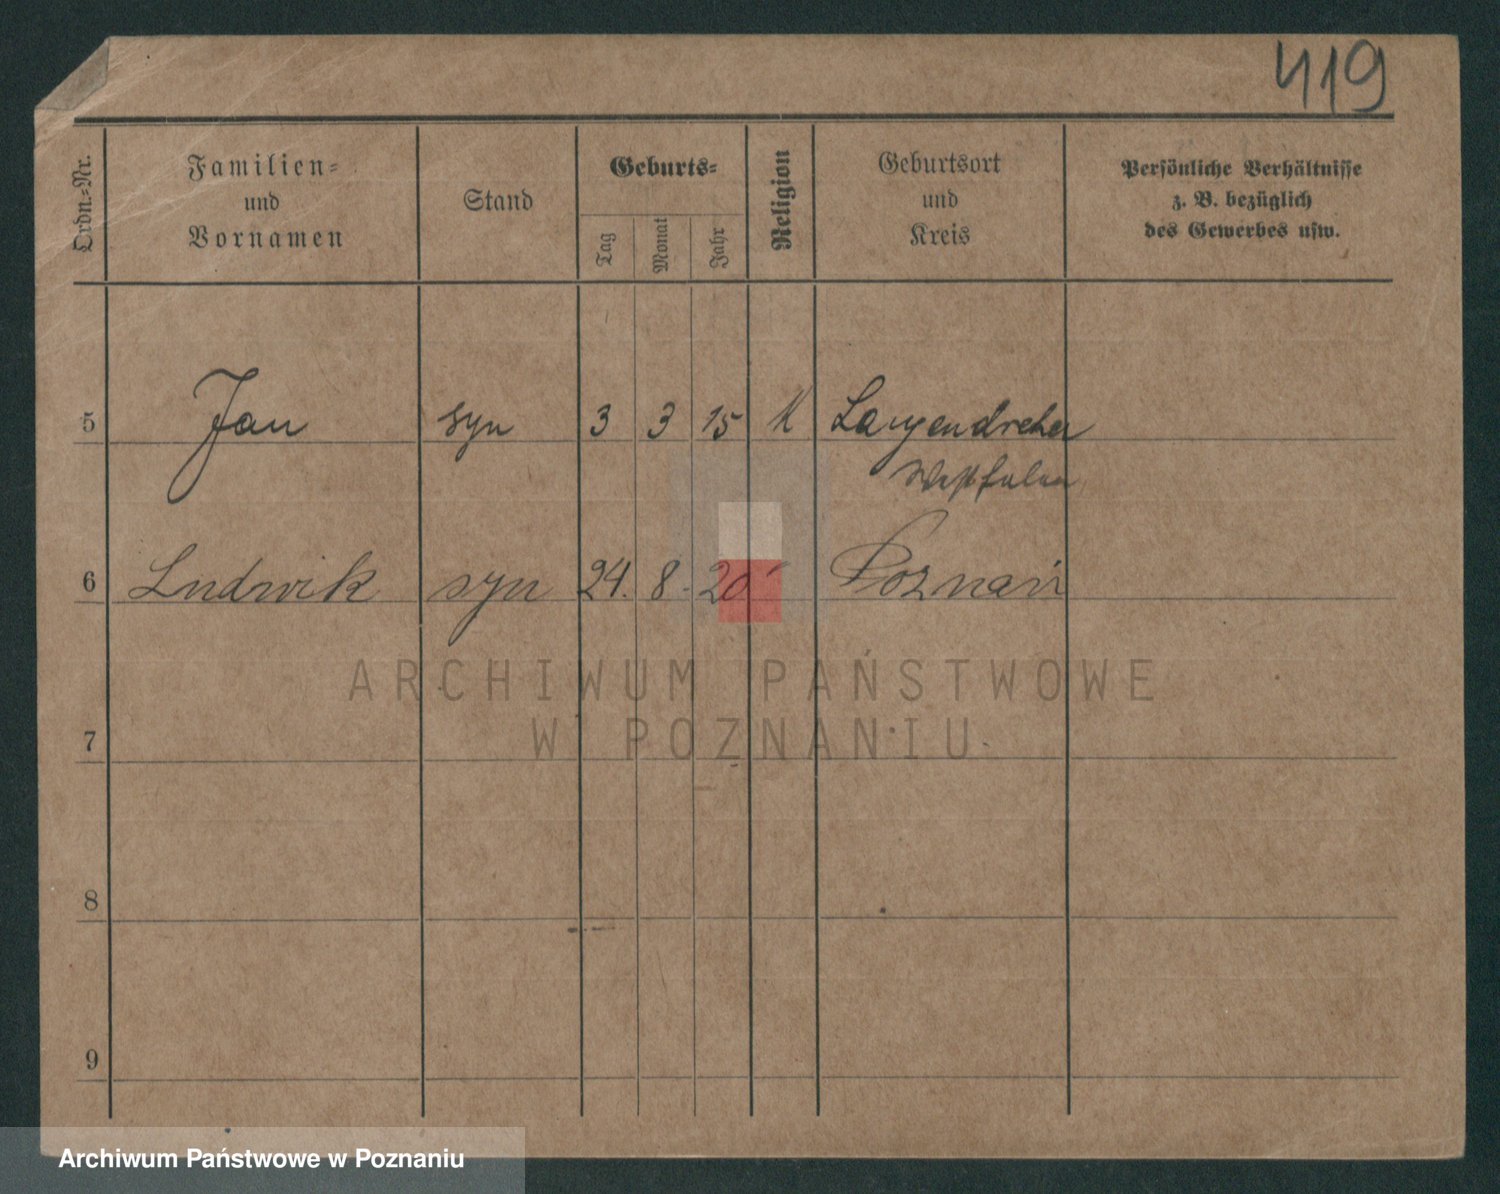 419
Ordn.-Nr.
Familien-
und
Vornamen
Stand
Geburts-
Tag
Monat
Jahr
Religion
Geburtsort
und
Kreis
Persönliche Verhältnisse
z. B. bezüglich
des Gewerbes usw.
5 Jan syn 3 3 15 K Langendreher
Westfalen
6 Ludwik syn 24. 8. 20 Poznań
ARCHIWUM PAŃSTWOWE
W POZNANIU
7
8
9
Archiwum Państwowe w Poznaniu